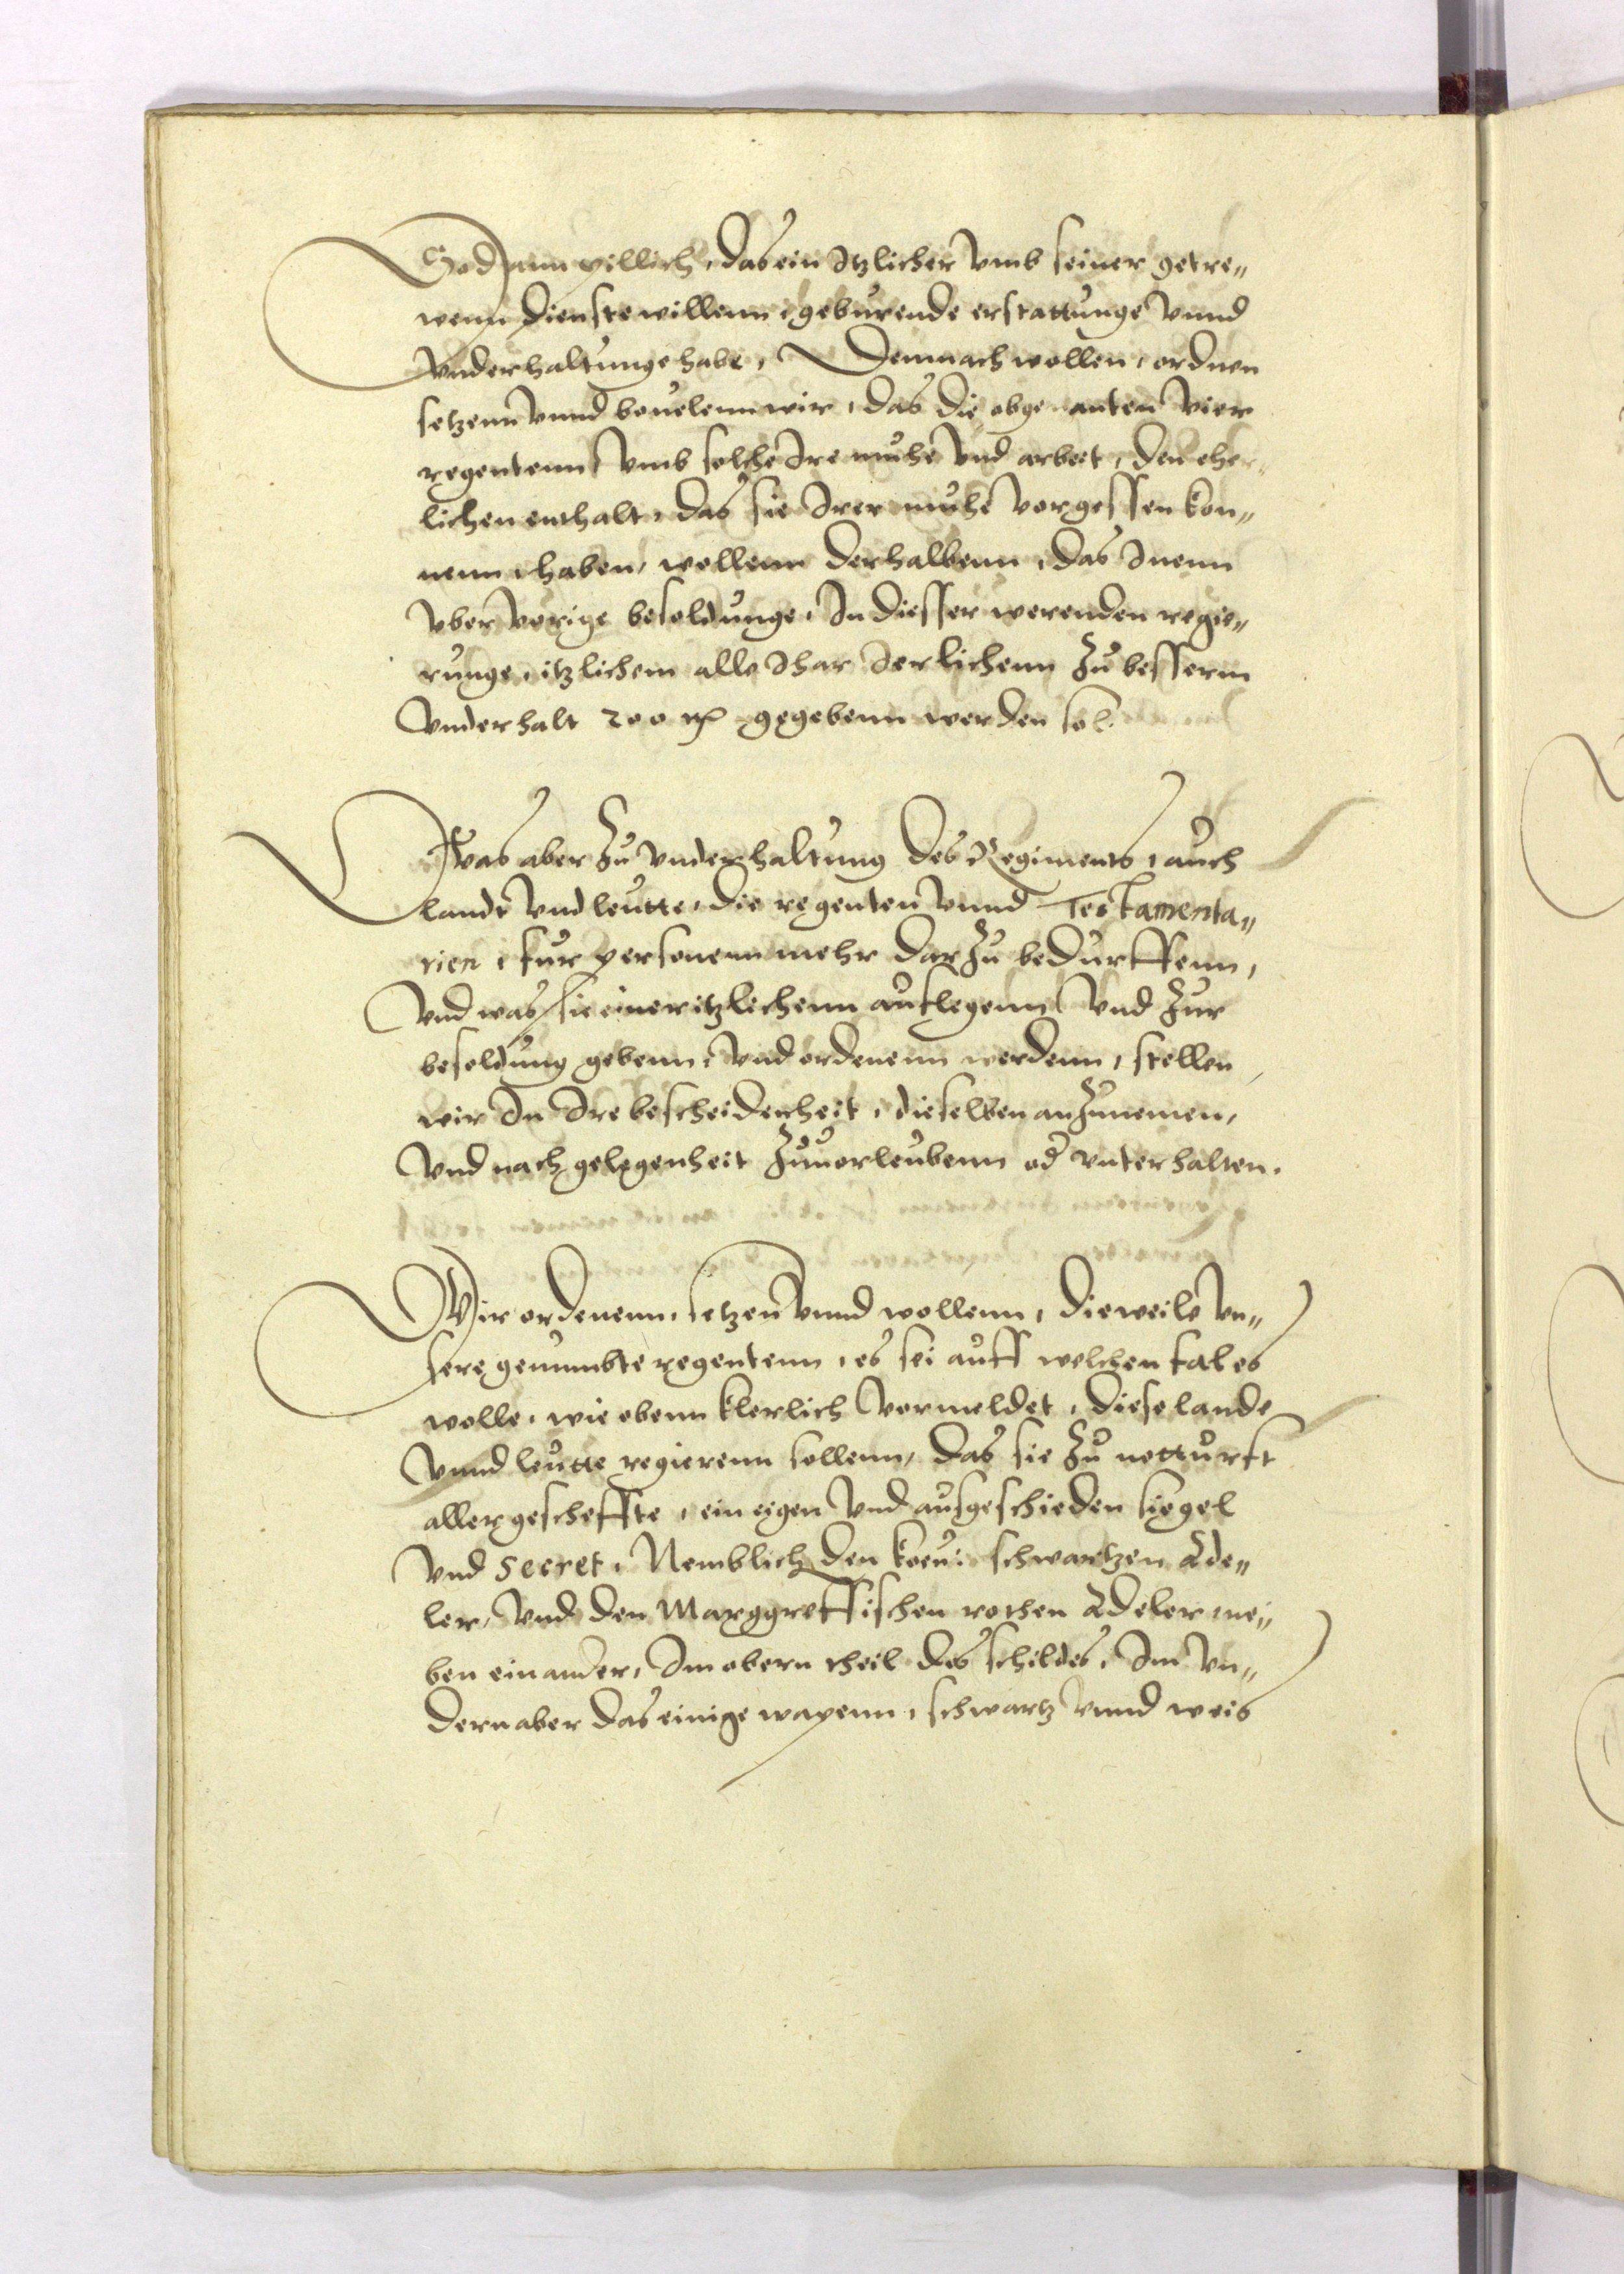 So dann pillich, das ein Itzlicher vmb seiner getre„
wenn Dienste willenn, geburende erstattunge vnnd
vnderhaltunge habe, Demnach wollen, ordnen
setzenn vnnd beuelenn wir, das die obgenanten vier
regentenn vmb solche Ire muhe vnd arbeit, den eher„
lichen enthalt, das sie Irer muhe vorgessen kon„
nenn, haben, wollenn derhalbenn, das Inenn
vber vorige besoldunge, In diesser werenden regie„
runge, itzlichem alle Ihar Jerlichenn zu besserm
vnderhalt 200 gegebenn werden sol.
Was aber zu vnderhaltung des Regiments, auch
landt vnd leutte, die regenten vnnd Testamenta„
rien, fur personenn mehr darzu bedurffenn,
vnd was sie einer itzlichenn auflegenn vnd zur
besoldung gebenn, vnd ordenenn werdenn, stellen
wir In Ire bescheidenheit, dieselben anzunemen,
vnd nach gelegenheit zuuorleubenn od vnterhalten.
Wir ordenenn, setzen vnnd wollenn, dieweile vn„
sere genumbte regentenn, es sei auff welchen fal es
wolle, wie obenn klerlich vormeldet, diese lande
vnnd leutte regierenn sollenn, das sie zu notturft
aller gescheffte, ein eigen vnd ausgeschieden siegel
vnd Secret, Nemblich den schwartzen Ade„
ler, vnd den Marggreffischen rothen Adeler ne„
ben einander, Im obern theil des schildes, Im vn„
dern aber das einige wapenn, schwartz vnnd weis